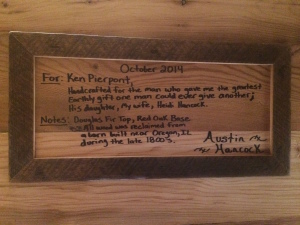 October 2014
For: Ken Pierpont,
Handcrafted for the man who gave me the greatest
Earthly gift one man could ever give another;
His daughter, my wife, Heidi Hancock.
Notes: Douglas Fir Top, Red Oak Base
All wood was reclaimed from
a barn built near Oregon, IL
during the late 1800's.
Austin
Hancock